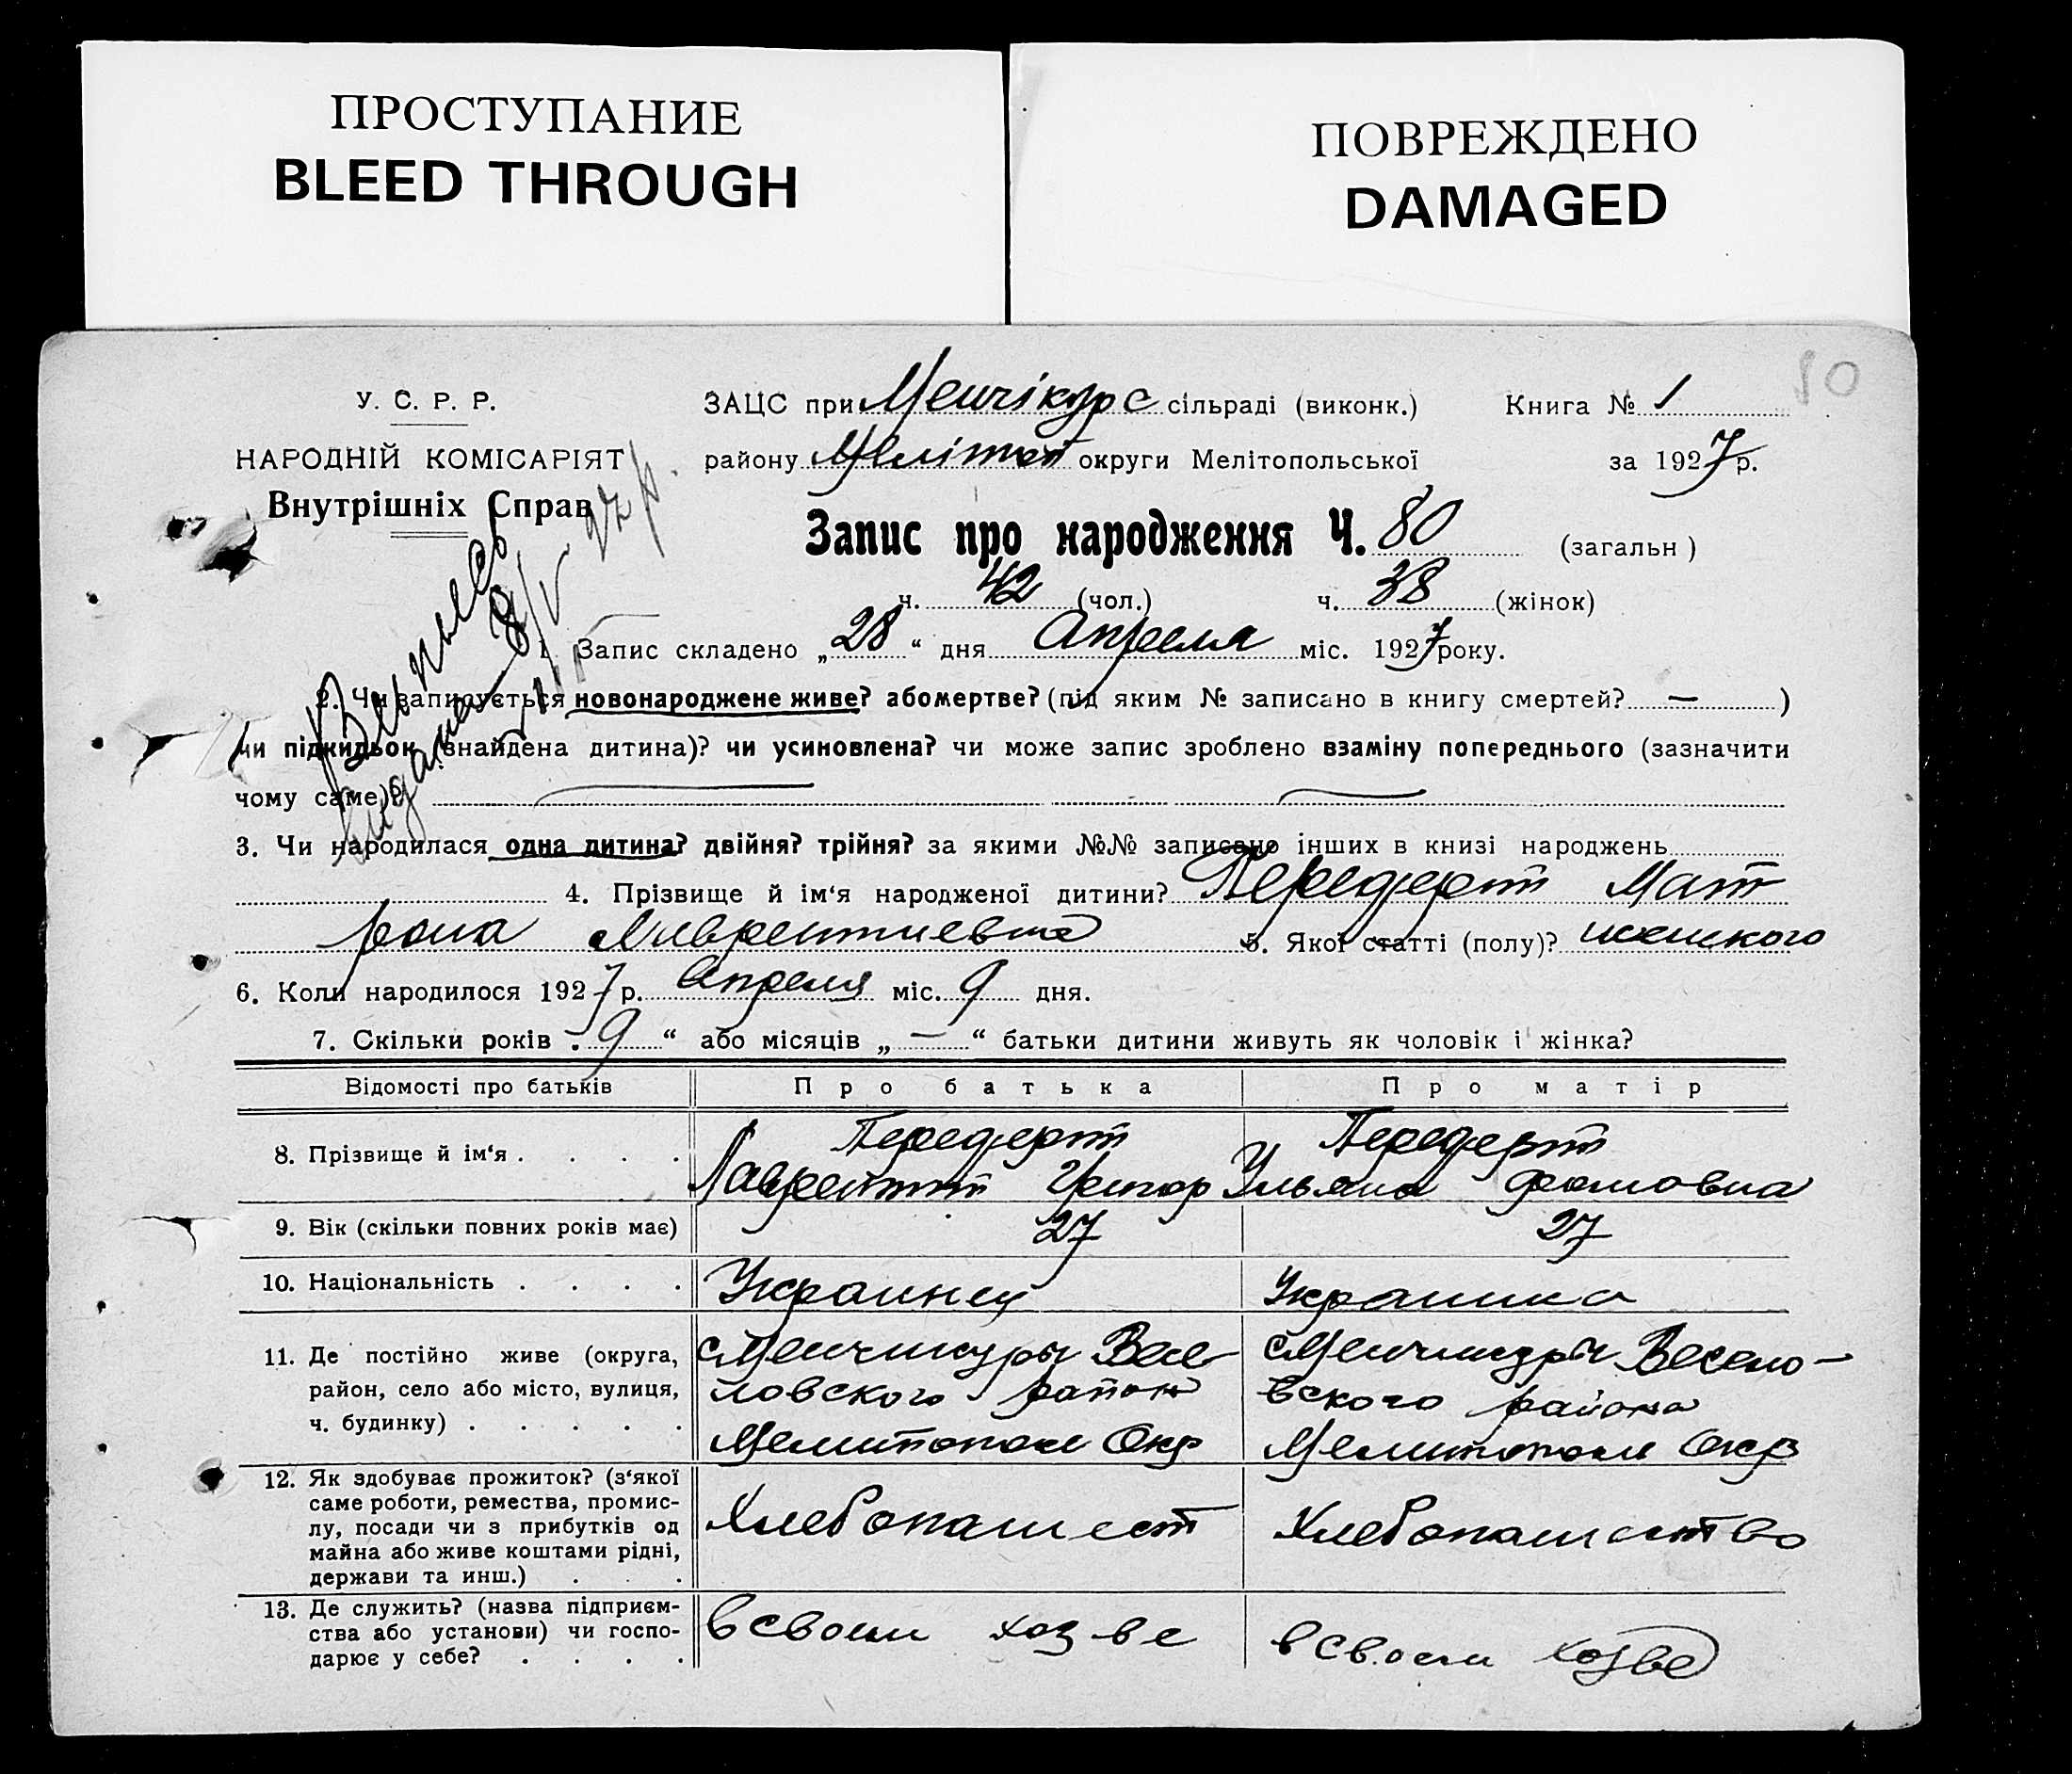 ПРОСТУПАНИЕ
BLEED THROUGH
ПОВРЕЖДЕНО
DAMAGED
80
У. С. Р. Р.
НАРОДНІЙ КОМІСАРІЯТ
Внутрішніх Справ
ЗАЦС при Менчікурс сільраді (виконк.) Книга № 1
району Меліт округи Мелітопольської за 1927 р.
Запис про народження Ч. 80 (загальн)
ч. 42 (чол.) ч. 38 (жінок)
Выпись
8/V 27 р.
1. Запис складено „28“ дня Апреля міс. 1927 року.
2. Чи записується новонароджене живе? або мертве? (під яким № записано в книгу смертей? — )
чи підкидьок (знайдена дитина)? чи усиновлена? чи може запис зроблено взаміну попереднього (зазначити
чому саме)?
3. Чи народилася одна дитина? двійня? трійня? за якими №№ записано інших в книзі народжень
4. Прізвище й ім‘я народженої дитини? Передерт Мат
рона Лаврентиевна 5. Якої статті (полу)? женского
6. Коли народилося 1927 р. Апреля міс. 9 дня.
7. Скільки років „9“ або місяців „—“ батьки дитини живуть як чоловік і жінка?
Відомості про батьків Про батька Про матір
8. Прізвище й ім‘я . . . . Передерт Передерт
Лаврентий Григор Ульяна Фомовна
9. Вік (скільки повних років має) 27 27
10. Національність . . . . Украинец Украинка
11. Де постійно живе (округа, район, село або місто, вулиця, ч. будинку) . . . . .
с Менчикуры Весе-
ловского район
Мелитопол Окр
с Менчикуры Весело-
вского района
Мелитопол Окр
12. Як здобуває прожиток? (з‘якої
саме роботи, ремества, промис-
лу, посади чи з прибутків од
майна або живе коштами рідні,
держави та инш.) . . .
Хлебопашест Хлебопашество
13. Де служить? (назва підприєм-
ства або установи) чи госпо-
дарює у себе? . . . .
в своем хоз ве в своем хозве